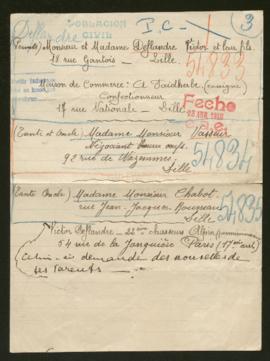 Deflandre
POBLACION CIVIL
P.C—
3
(Famille) Monsieur et Madame Deflandre Victor et leur fils.
18 rue Gantois — Lille.
54833
Maison de Commerce: A Faidherbe (enseigne)
Confectionneur
17 rue Nationale — Lille
Fecha
(Tante et Oncle) Madame Monsieur Vasseur
Négociant
92 rue de Wazemmes
Lille
54834
(Tante Oncle) Madame Monsieur Chabot.
rue Jean-Jacques Rousseau
Lille
54835
Victor Deflandre — 22ème chasseurs Alpins
54 rue de la Jonquière Paris (17ème arr)
Celui-ci demande des nouvelles de
ses Parents.